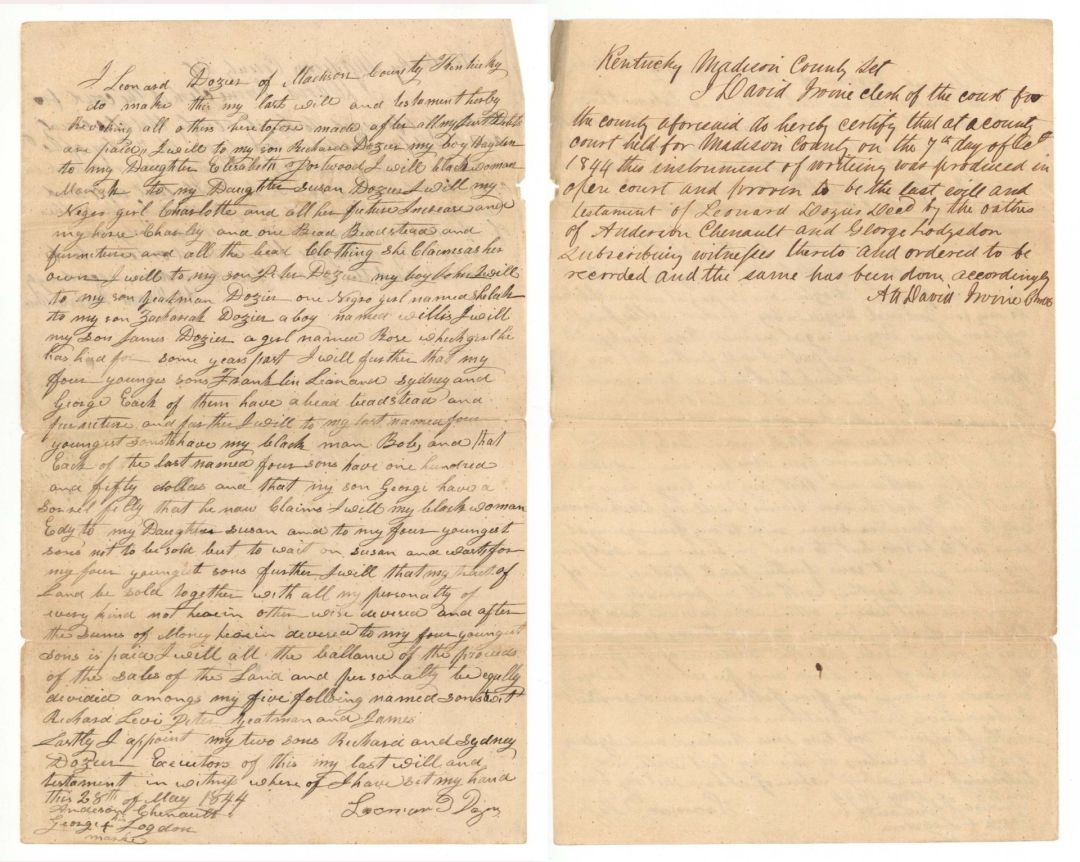 I Leonard Dozier of Madison County Kentucky
do make this my last will and testament herby
Revoking all others heretofore made after all my just debts
are paid, I will to my son Richard Dozier my boy Hayden
to my Daughter Elizabeth Portwood I will black woman
Mariah to my Daughter Susan Dozier I will my
Negro girl Charlotte and all her future Increase and
my horse Charley and one Bead Beadstead and
furniture and all the bead Clothing she Claims as her
own I will to my son Peter Dozier my boy John I will
to my son Yeatman Dozier one Negro girl named Shelah
to my son Zachariah Dozier a boy named Willis I will
my son James Dozier a girl named Rose which girl he
has had for some years past I will further that my
four younges sons Franklin Leanard Sydney and
George Each of them have a bead beadstead and
furniture and further I will to my last named four
youngest sons to have my black man Bob, and that
Each of the last named four sons have one hundred
and fifty dollars and that my son George have a
sorrel filly that he now Claims I will my black woman
Edy to my Daughter Susan and to my four youngest
sons not to be sold but to wait on Susan and wash for
my four youngest sons further I will that my tract of
Land be sold together with all my personalty of
every kind not herein other wise devered and after
the sums of Money herein devered to my four youngest
sons is paid I will all the ballance of the proceeds
of the sales of the Land and personalty be eqully
devided amongs my five follwing named sons to wit
Richard Levi Peter Yeatman and James
Lastly I appoint my two sons Richard and Sydney
Dozier Executors of this my last will and
testament in witness where of I have set my hand
this 28th of May 1844
Anderson Chenault
George his + Logdon
mark
Leonard Dozier
Kentucky Madison County Sct
I David Irvine clerk of the court for
the county aforesaid do hereby certify that at a county
court held for Madison County on the 7th day of Oct
1844 this instrument of writing was produced in
open court and proven to be the last will and
testament of Leonard Dozier Decd by the oathes
of Anderson Chenault and George Lodgsdon
subscribing witnesses thereto and ordered to be
recorded and the same has been done accordingly
Att David Irvine